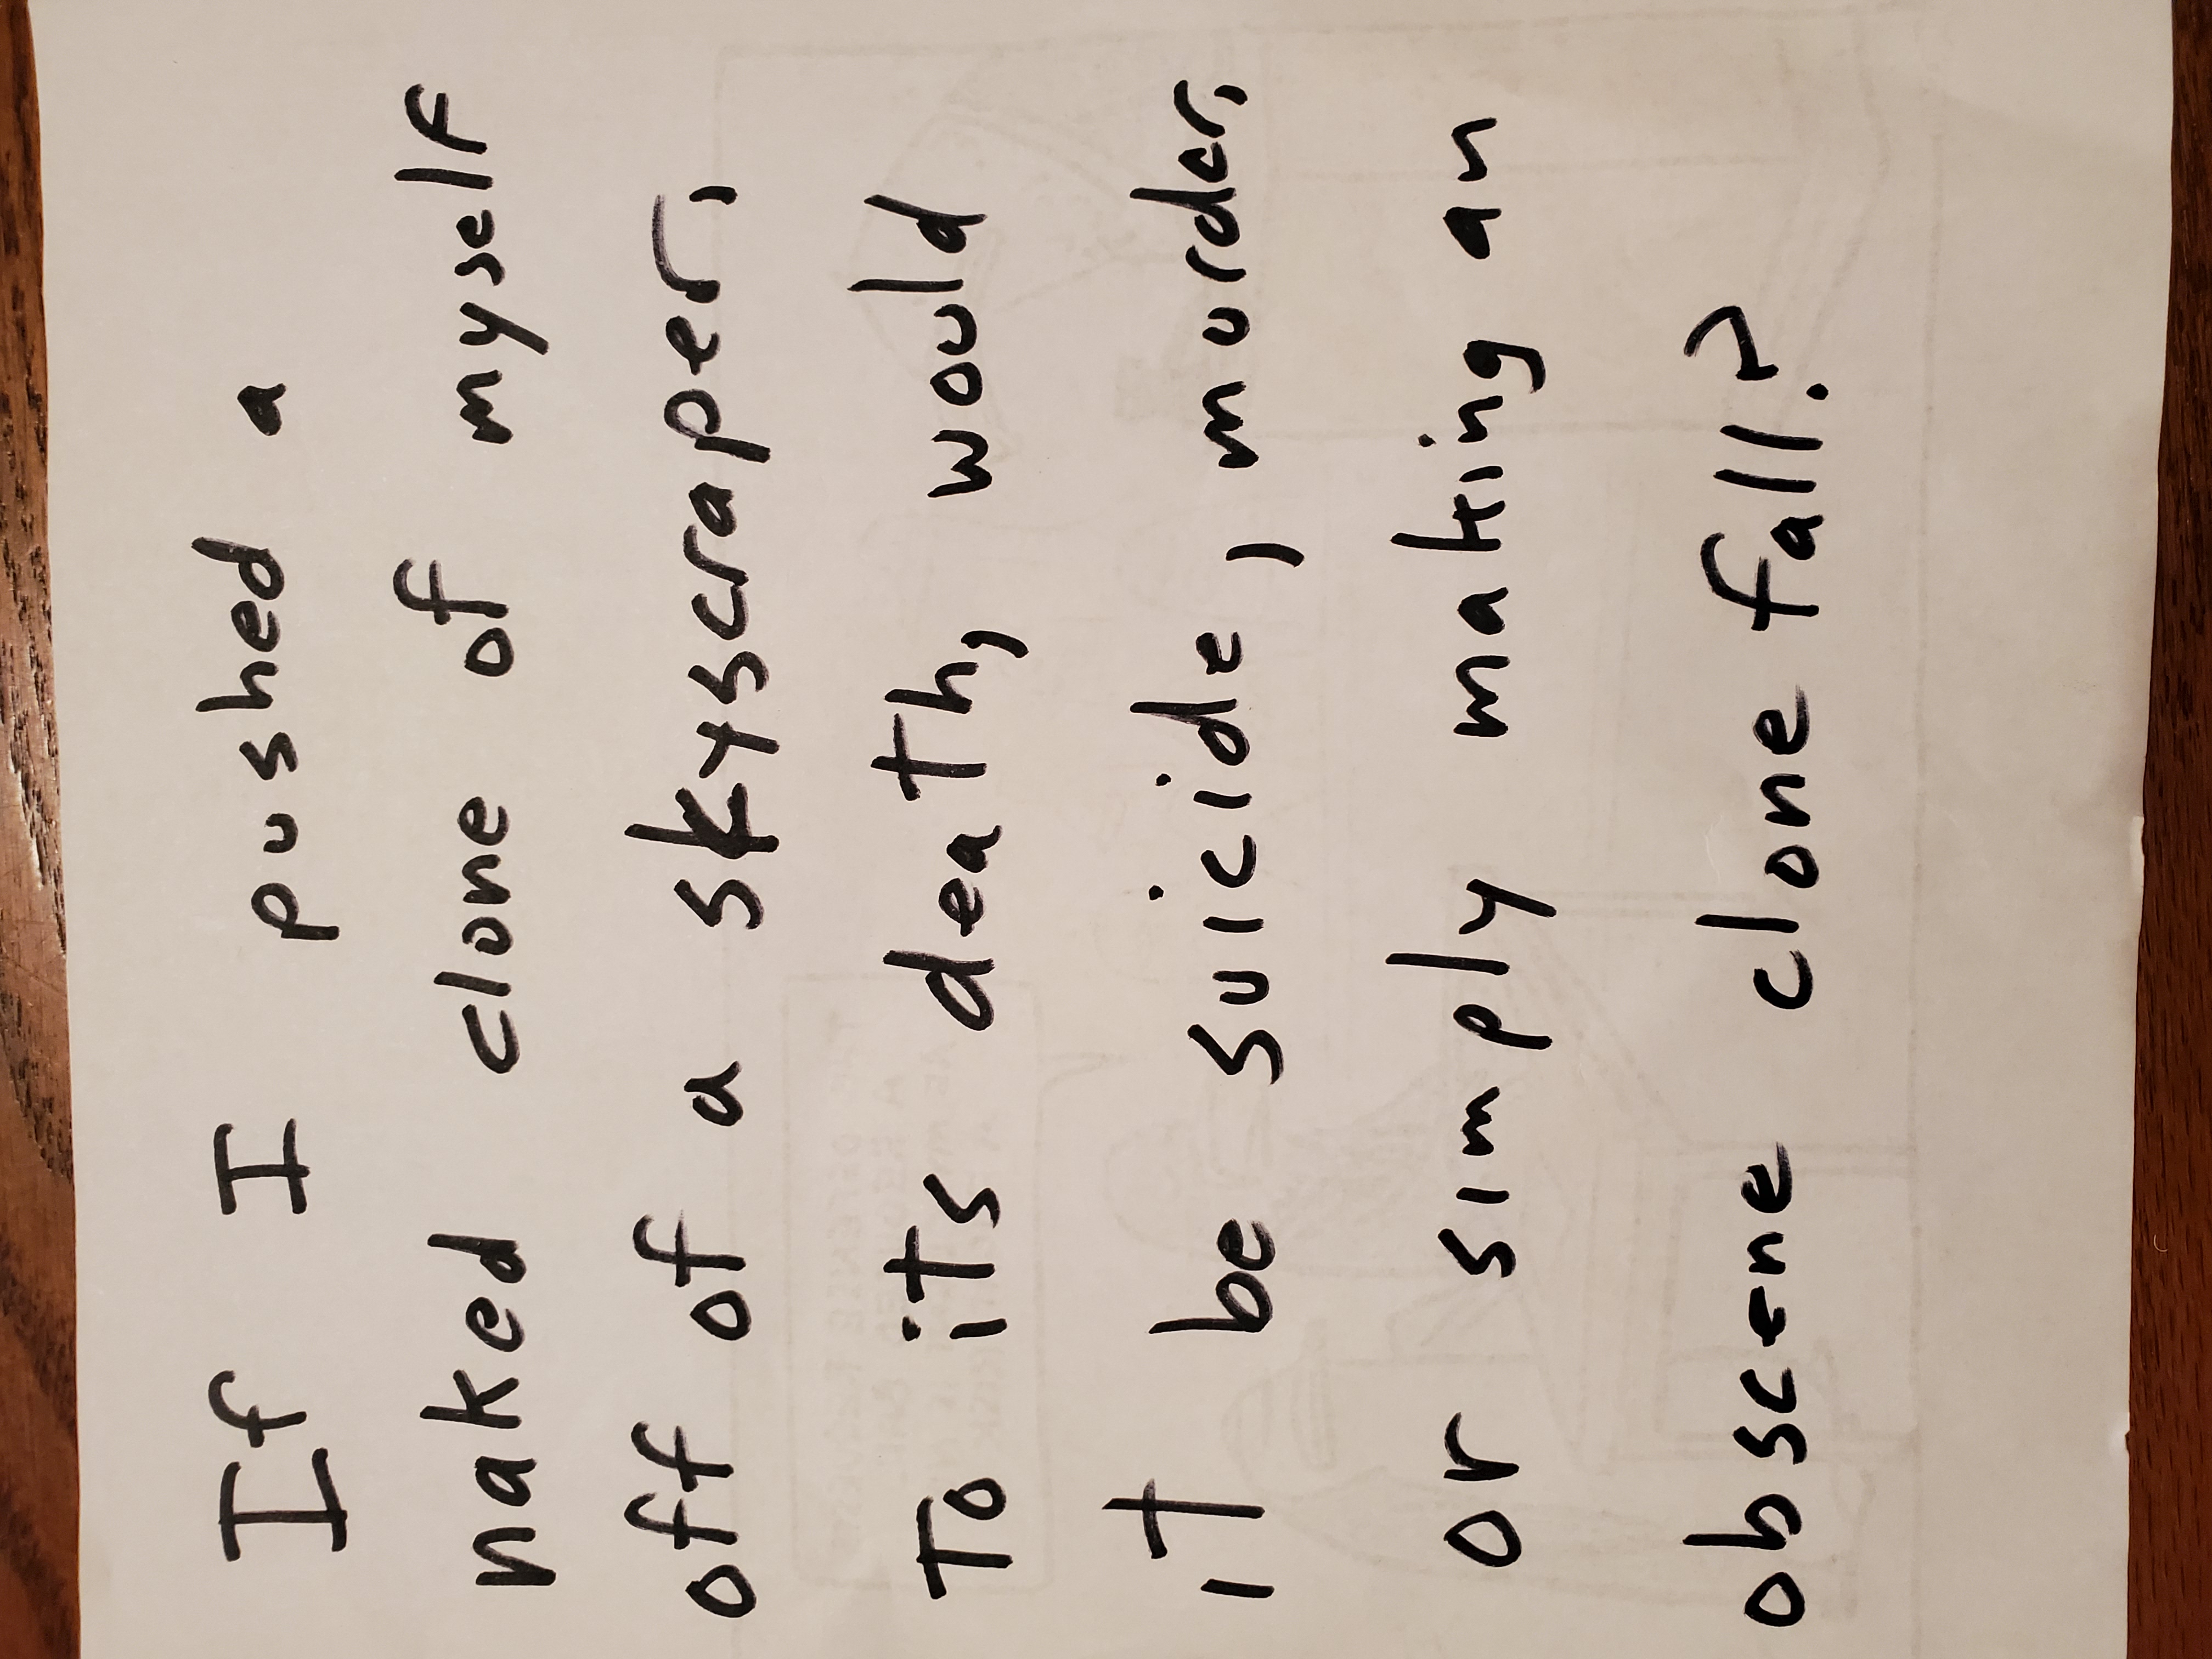 If I pushed a
naked clone of myself
off of a skyscraper,
To its death, would
it be suicide, murder,
or simply making an
obscene clone fall?